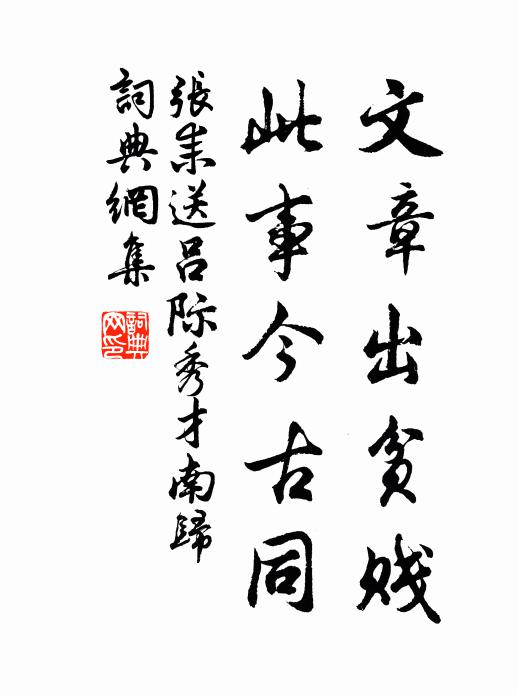 文章出贫贱
此事今古同
張耒送吕际秀才南歸
詞典網集
詞典网印